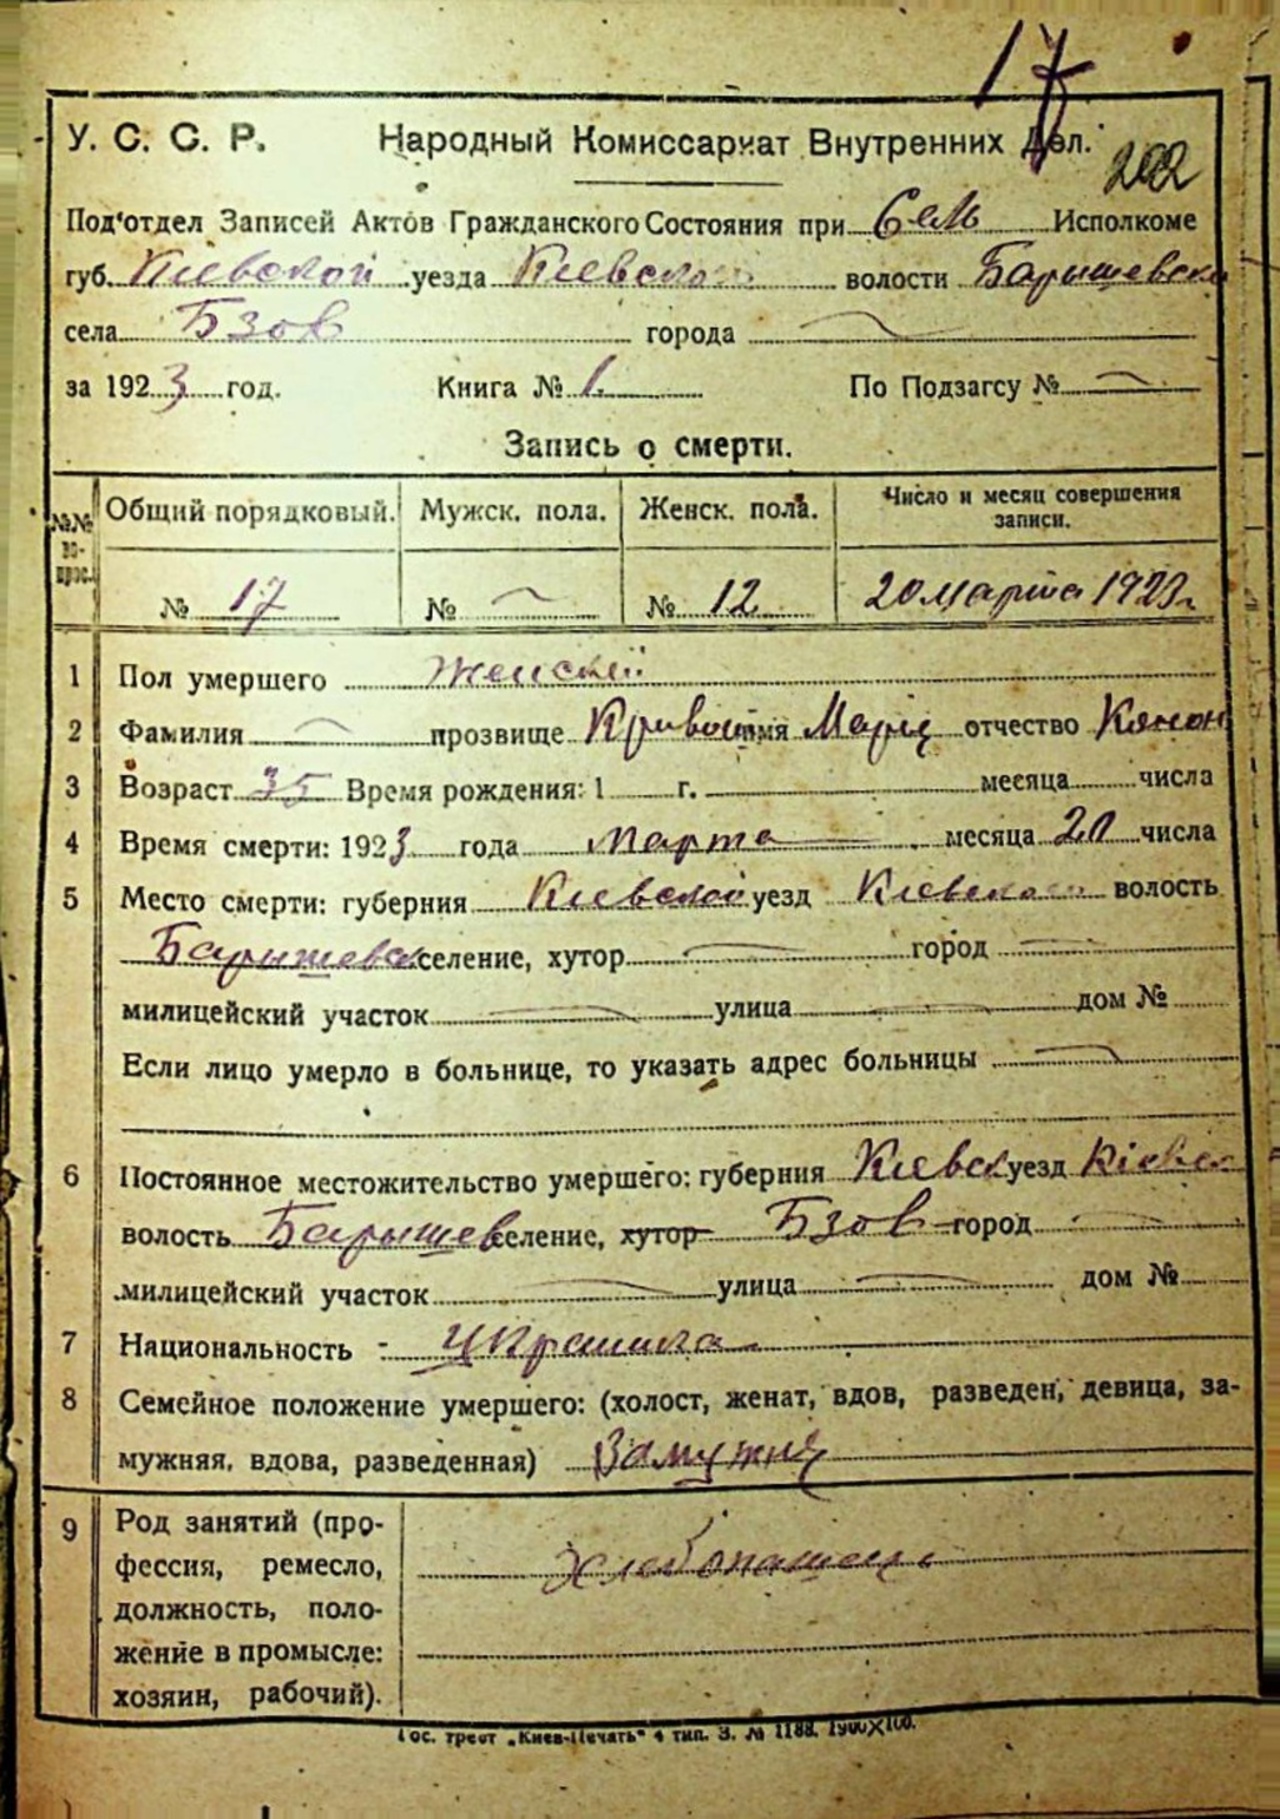 17
У. С. С. Р. Народный Комиссариат Внутренних Дел.
202
Под'отдел Записей Актов Гражданского Состояния при Сель Исполкоме
губ. Киевской уезда Киевской волости Барышевской
села Бзов города
за 1923 год. Книга № 1. По Подзагсу №
Запись о смерти.
№№ во- прос. Общий порядковый. Мужск. пола. Женск. пола. Число и месяц совершения записи.
№ 17 № № 12 20 марта 1923 г.
1 Пол умершего Женский
2 Фамилия прозвище имя Марія отчество Конон
3 Возраст 35 Время рождения: 1 г. месяца числа
4 Время смерти: 1923 года марта месяца 20 числа
5 Место смерти: губерния Киевской уезд Киевской волость
Барышевск селение, хутор город
милицейский участок улица дом №
Если лицо умерло в больнице, то указать адрес больницы
6 Постоянное местожительство умершего: губерния Киевск уезд Кіевск
волость Барышев селение, хутор Бзов город
милицейский участок улица дом №
7 Национальность - Украинка
8 Семейное положение умершего: (холост, женат, вдов, разведен, девица, за-
мужняя, вдова, разведенная) Замужня
9 Род занятий (про-
фессия, ремесло, Хлебопашець
должность, поло-
жение в промысле:
хозяин, рабочий).
Гос. трест „Киев-Печать“ 4 тип. З. № 1188. 1900×100.